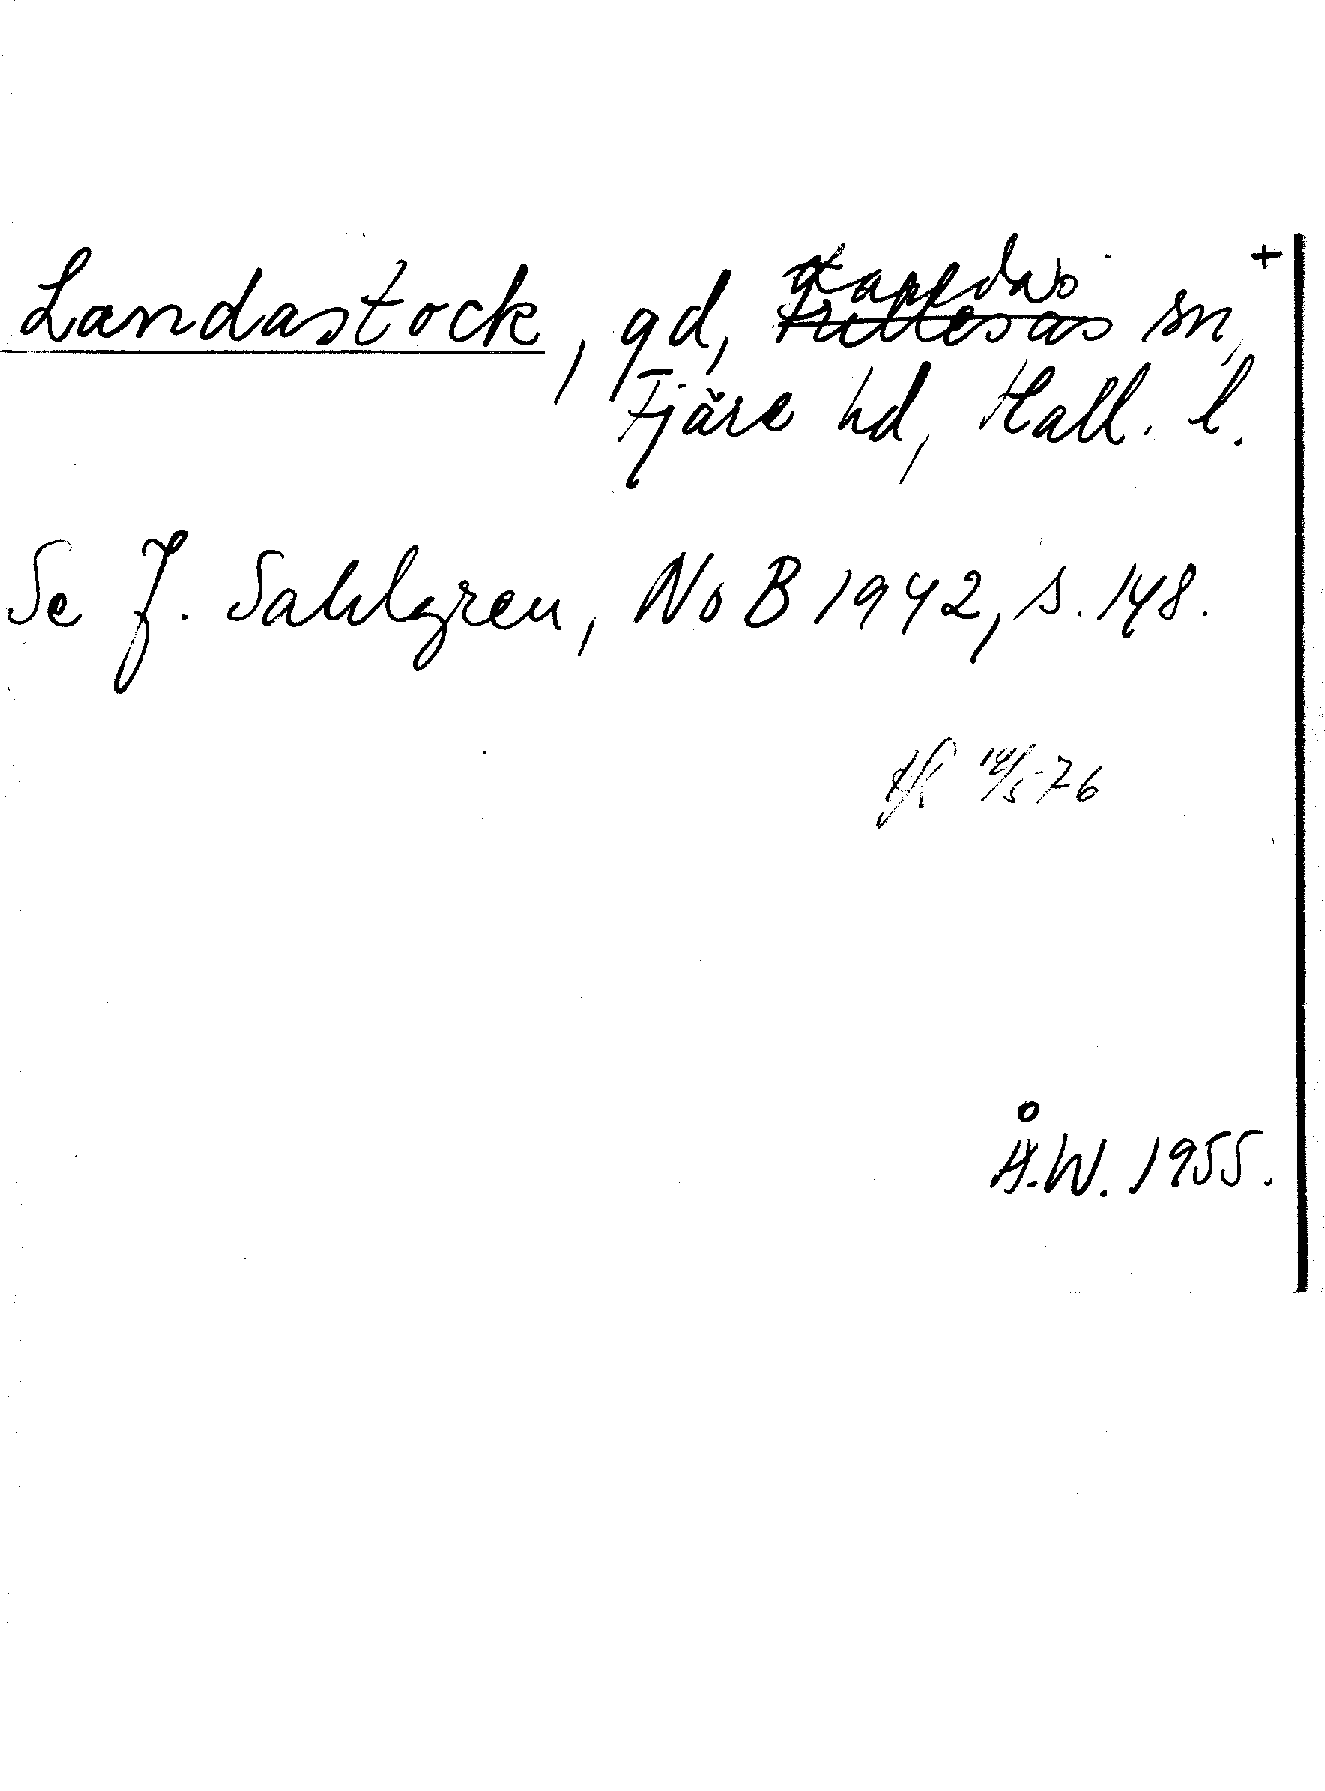 Landastock, gd, Frillesås sn, +
Fjäre hd, Hall. l.
Se J. Sahlgren, NoB 1942, s. 148.
Å.W. 1955.